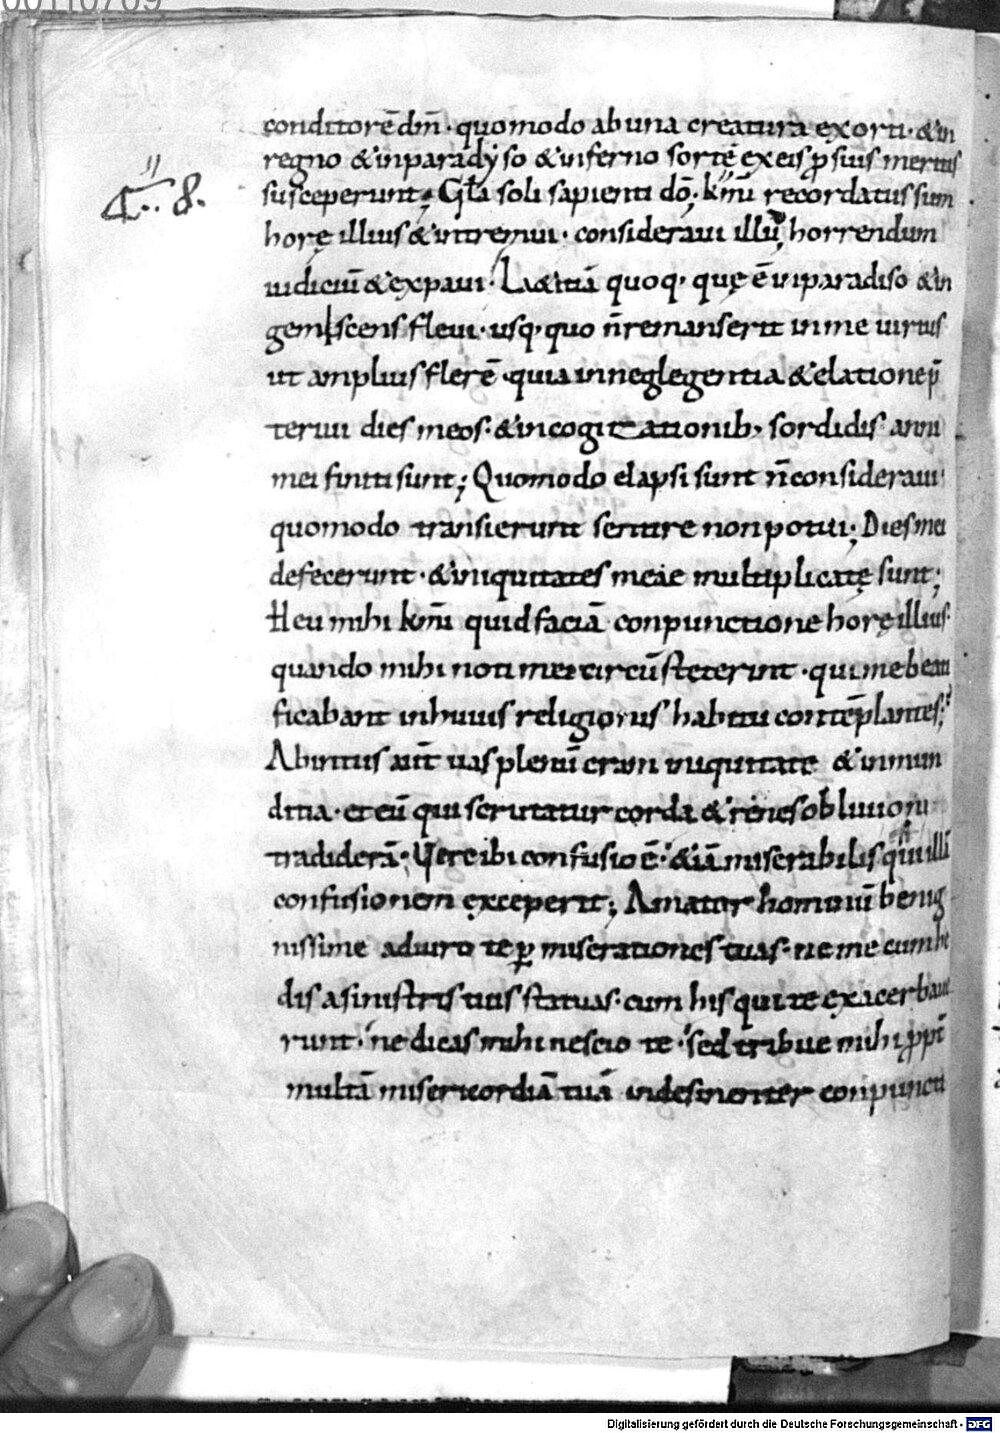 00110709
conditorē dm̄· quomodo ab una creatura exorti· & in
regno & in paradyso & inferno sortē ex eis p suis meritis
susceperunt; Gła soli sapienti dō; km̄i recordatus sum
C·· 8·
horę illius & intremui· consideraui illū horrendum
iudiciū & expaui· Læticiā quoq· quę ē in paradiso & in
gemiscens fleui· usq· quo n̄ remanserit in me uirtus
ut amplius flerē· quia in neglegentia & elatione p̄
teriui dies meos· & in cogitationib; sordidis anni
mei finiti sunt; Quomodo elapsi sunt n̄ consideraui·
quomodo transierunt sentire non potui; Dies mei
defecerunt· & iniquitates meae multiplicatę sunt;
Heu mihi km̄i quid faciā conpunctione horę illius·
quando mihi noti mei circūsteterint· qui me beati
ficabant in huius religionis habitu contēplantes;
Ab intus aūt uas plenū eram iniquitate & inmun
ditia· et eū qui scrutatur corda & renes obliuioni
traditerā· Vere ibi confusio ē· & iā miserabilis qui illā
confusionem exceperit; Amator hominū benig
nissime adiuro te p miserationes tuas· ne me cum he
dis a sinistris tuis statuas· cum his qui te exacerbaue
runt· ne dicas mihi nescio te· sed tribue mihi ppt̄
multā misericordiā tuā indesinenter conpuncti
Digitalisierung gefördert durch die Deutsche Forschungsgemeinschaft - DFG